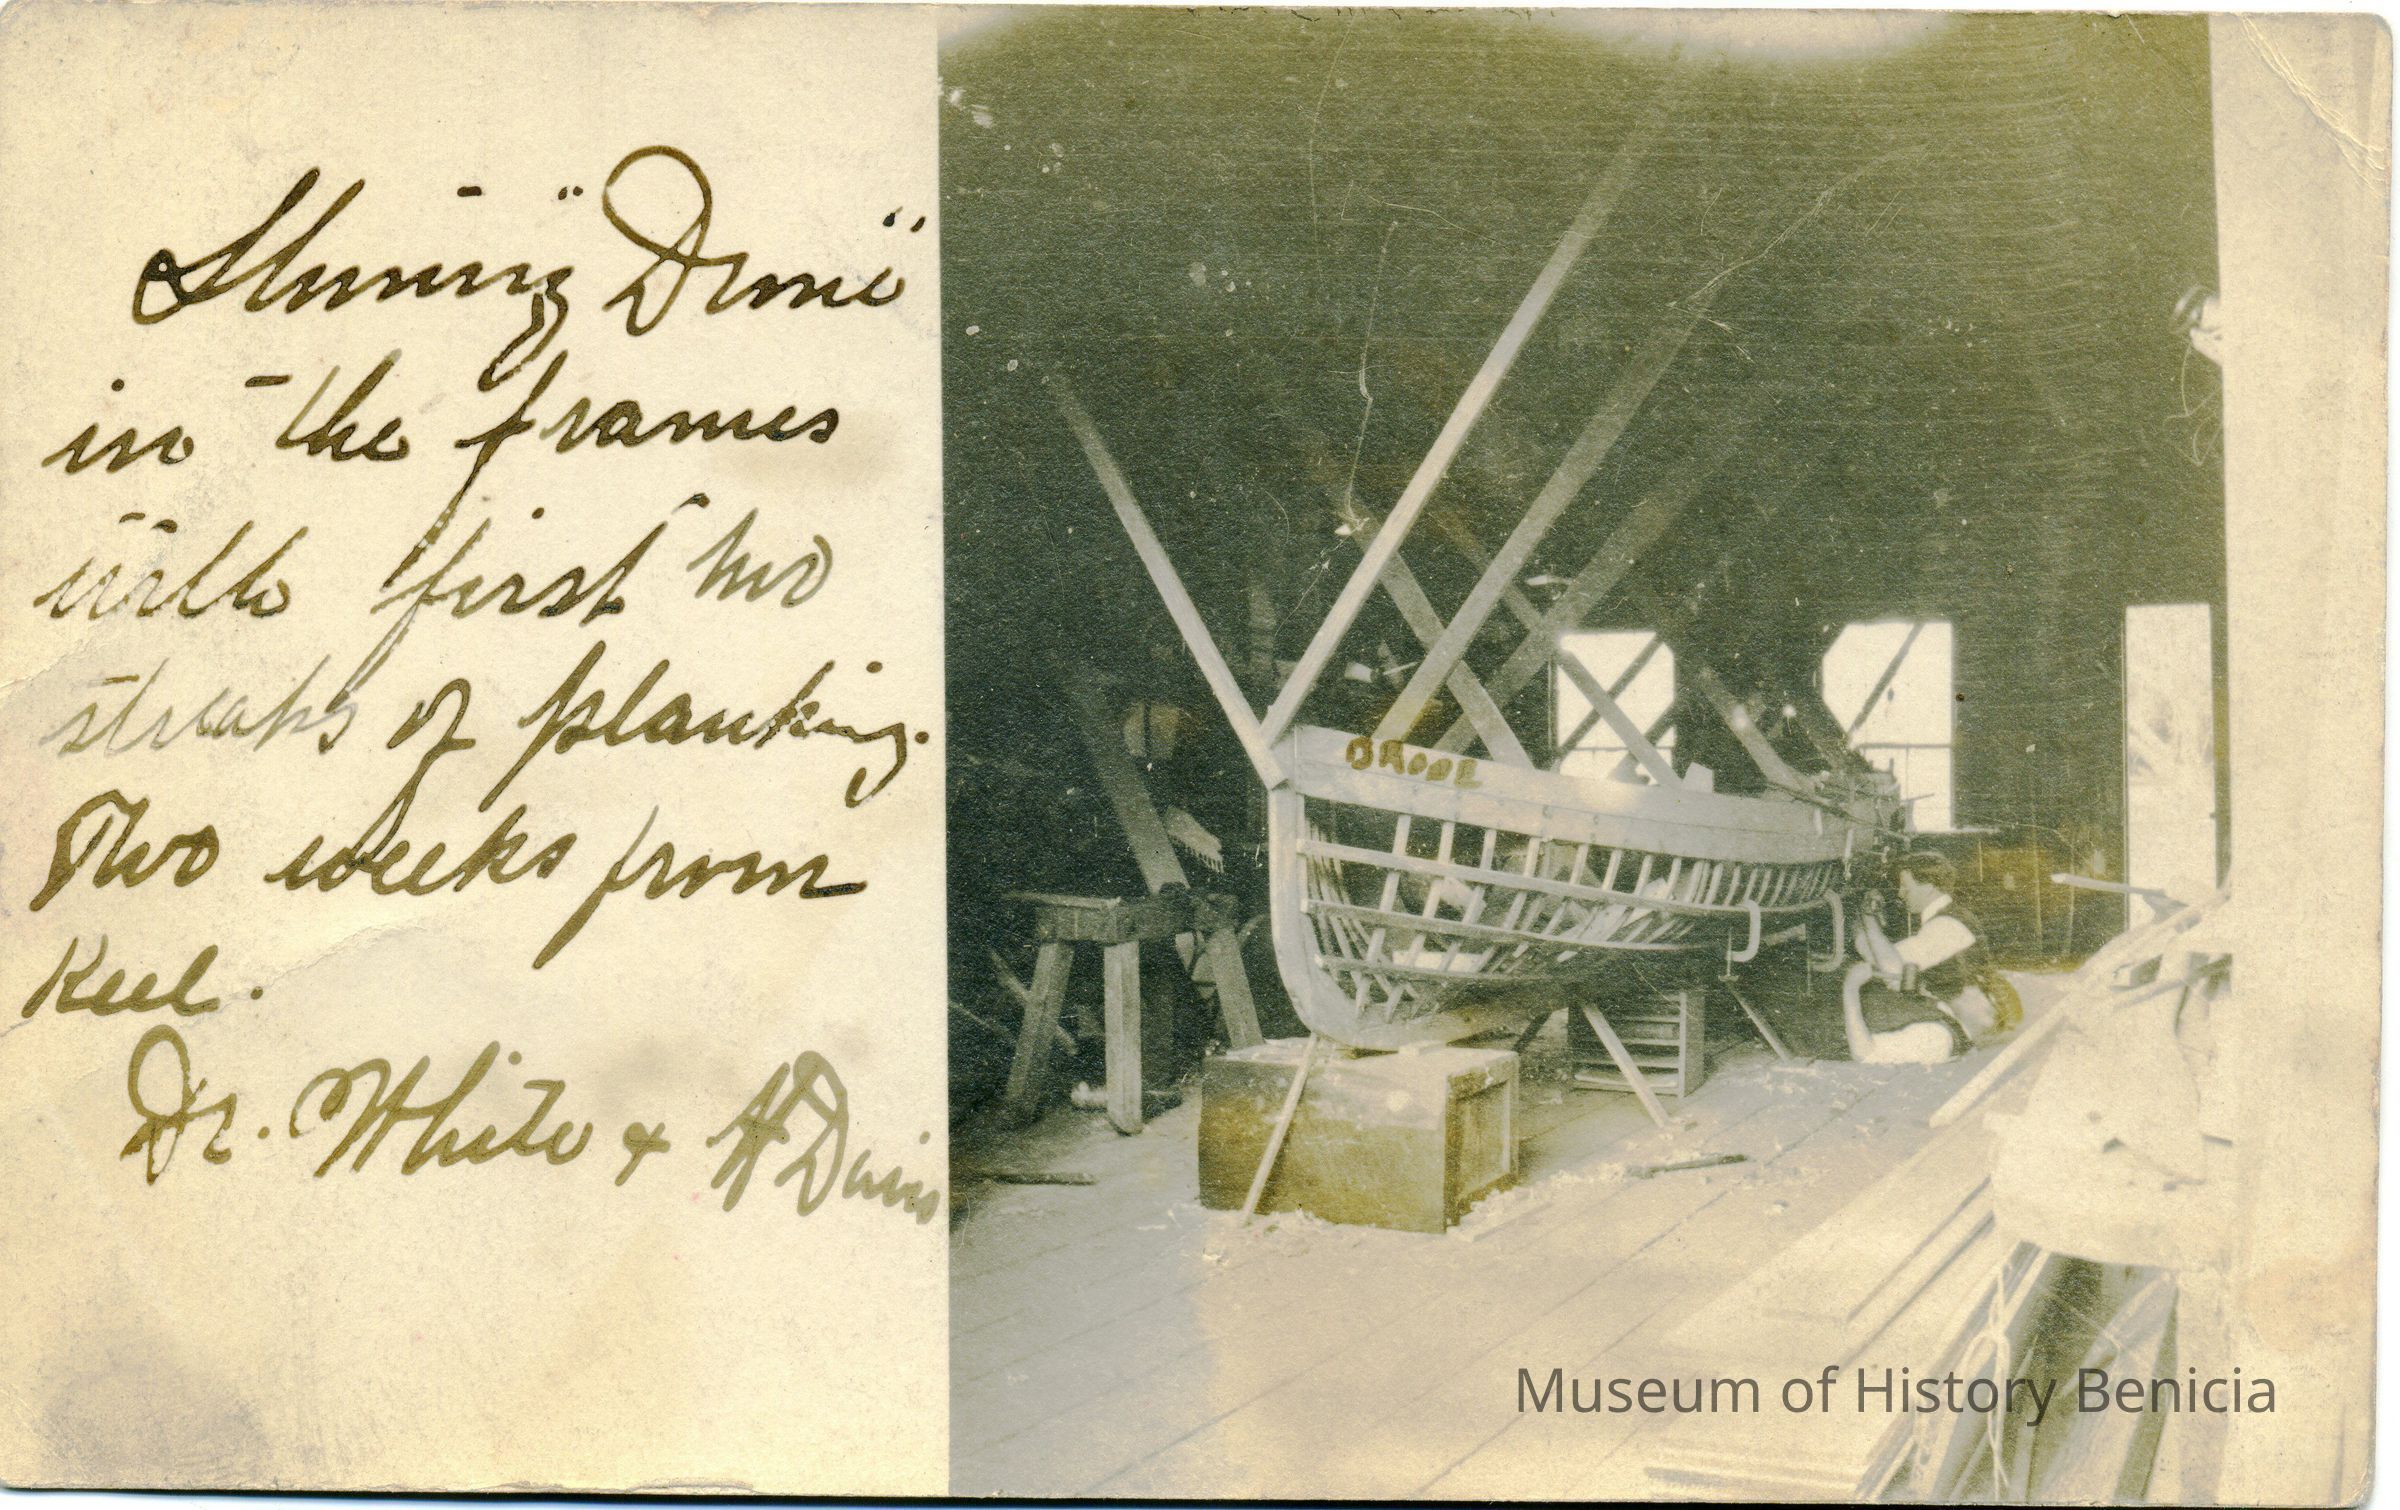 Showing "Drone"
in the frames
with first two
streaks of planking.
Two weeks from
Keel.
Dr. White & H Davis
DRONE
Museum of History Benicia